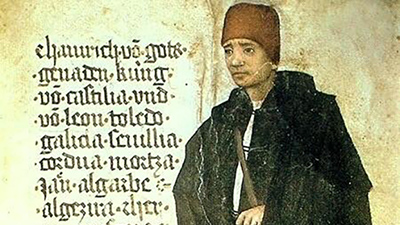 ehainrich·võ gots·
genaden·küng·
võ·castilia·vnd·
võ·leon·toledo·
galicia·seuillia·
cordua·mortza·
Jañ·algarbe·&·
·algezira·eher·